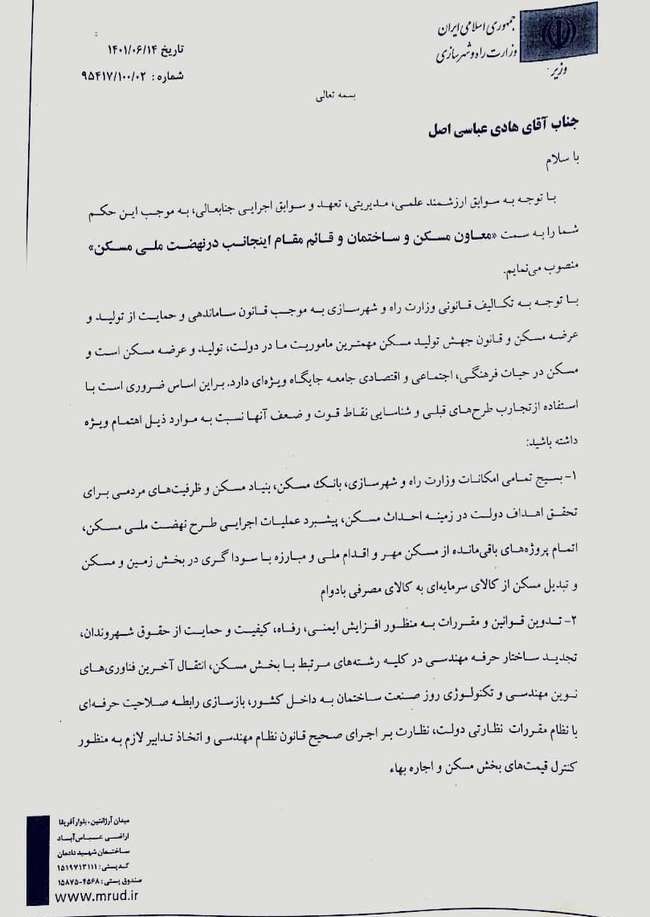 جمهوری اسلامی ایران
وزارت راه و شهرسازی
وزیر
تاریخ ۱۴۰۱/۰۶/۱۴
شماره : ۹۵۴۱۷/۱۰۰/۰۲
بسمه تعالی
جناب آقای هادی عباسی اصل
با سلام
با توجه به سوابق ارزشمند علمی، مدیریتی، تعهد و سوابق اجرایی جنابعالی، به موجب این حکم
شما را به سمت «معاون مسکن و ساختمان و قائم مقام اینجانب درنهضت ملی مسکن»
منصوب می‌نمایم.
با توجه به تکالیف قانونی وزارت راه و شهرسازی به موجب قانون ساماندهی و حمایت از تولید و
عرضه مسکن و قانون جهش تولید مسکن مهمترین ماموریت ما در دولت، تولید و عرضه مسکن است و
مسکن در حیات فرهنگی، اجتماعی و اقتصادی جامعه جایگاه ویژه‌ای دارد. براین اساس ضروری است با
استفاده ازتجارب طرح‌های قبلی و شناسایی نقاط قوت و ضعف آنها نسبت به موارد ذیل اهتمام ویژه
داشته باشید:
۱- بسیج تمامی امکانات وزارت راه و شهرسازی، بانک مسکن، بنیاد مسکن و ظرفیت‌های مردمی برای
تحقق اهداف دولت در زمینه احداث مسکن، پیشبرد عملیات اجرایی طرح نهضت ملی مسکن،
اتمام پروژه‌های باقی‌مانده از مسکن مهر و اقدام ملی و مبارزه با سودا گری در بخش زمین و مسکن
و تبدیل مسکن از کالای سرمایه‌ای به کالای مصرفی بادوام
۲- تدوین قوانین و مقررات به منظور افزایش ایمنی، رفاه، کیفیت و حمایت از حقوق شهروندان،
تجدید ساختار حرفه مهندسی در کلیه رشته‌های مرتبط با بخش مسکن، انتقال آخرین فناوری‌های
نوین مهندسی و تکنولوژی روز صنعت ساختمان به داخل کشور، بازسازی رابطه صلاحیت حرفه‌ای
با نظام مقررات نظارتی دولت، نظارت بر اجرای صحیح قانون نظام مهندسی و اتخاذ تدابیر لازم به منظور
کنترل قیمت‌های بخش مسکن و اجاره بهاء
میدان آرژانتین، بلوار آفریقا
اراضی عباس‌آباد
ساختمان شهید دادمان
کدپستی : ۱۵۱۹۷۱۳۱۱۱
صندوق پستی : ۴۵۶۸-۱۵۸۷۵
www.mrud.ir